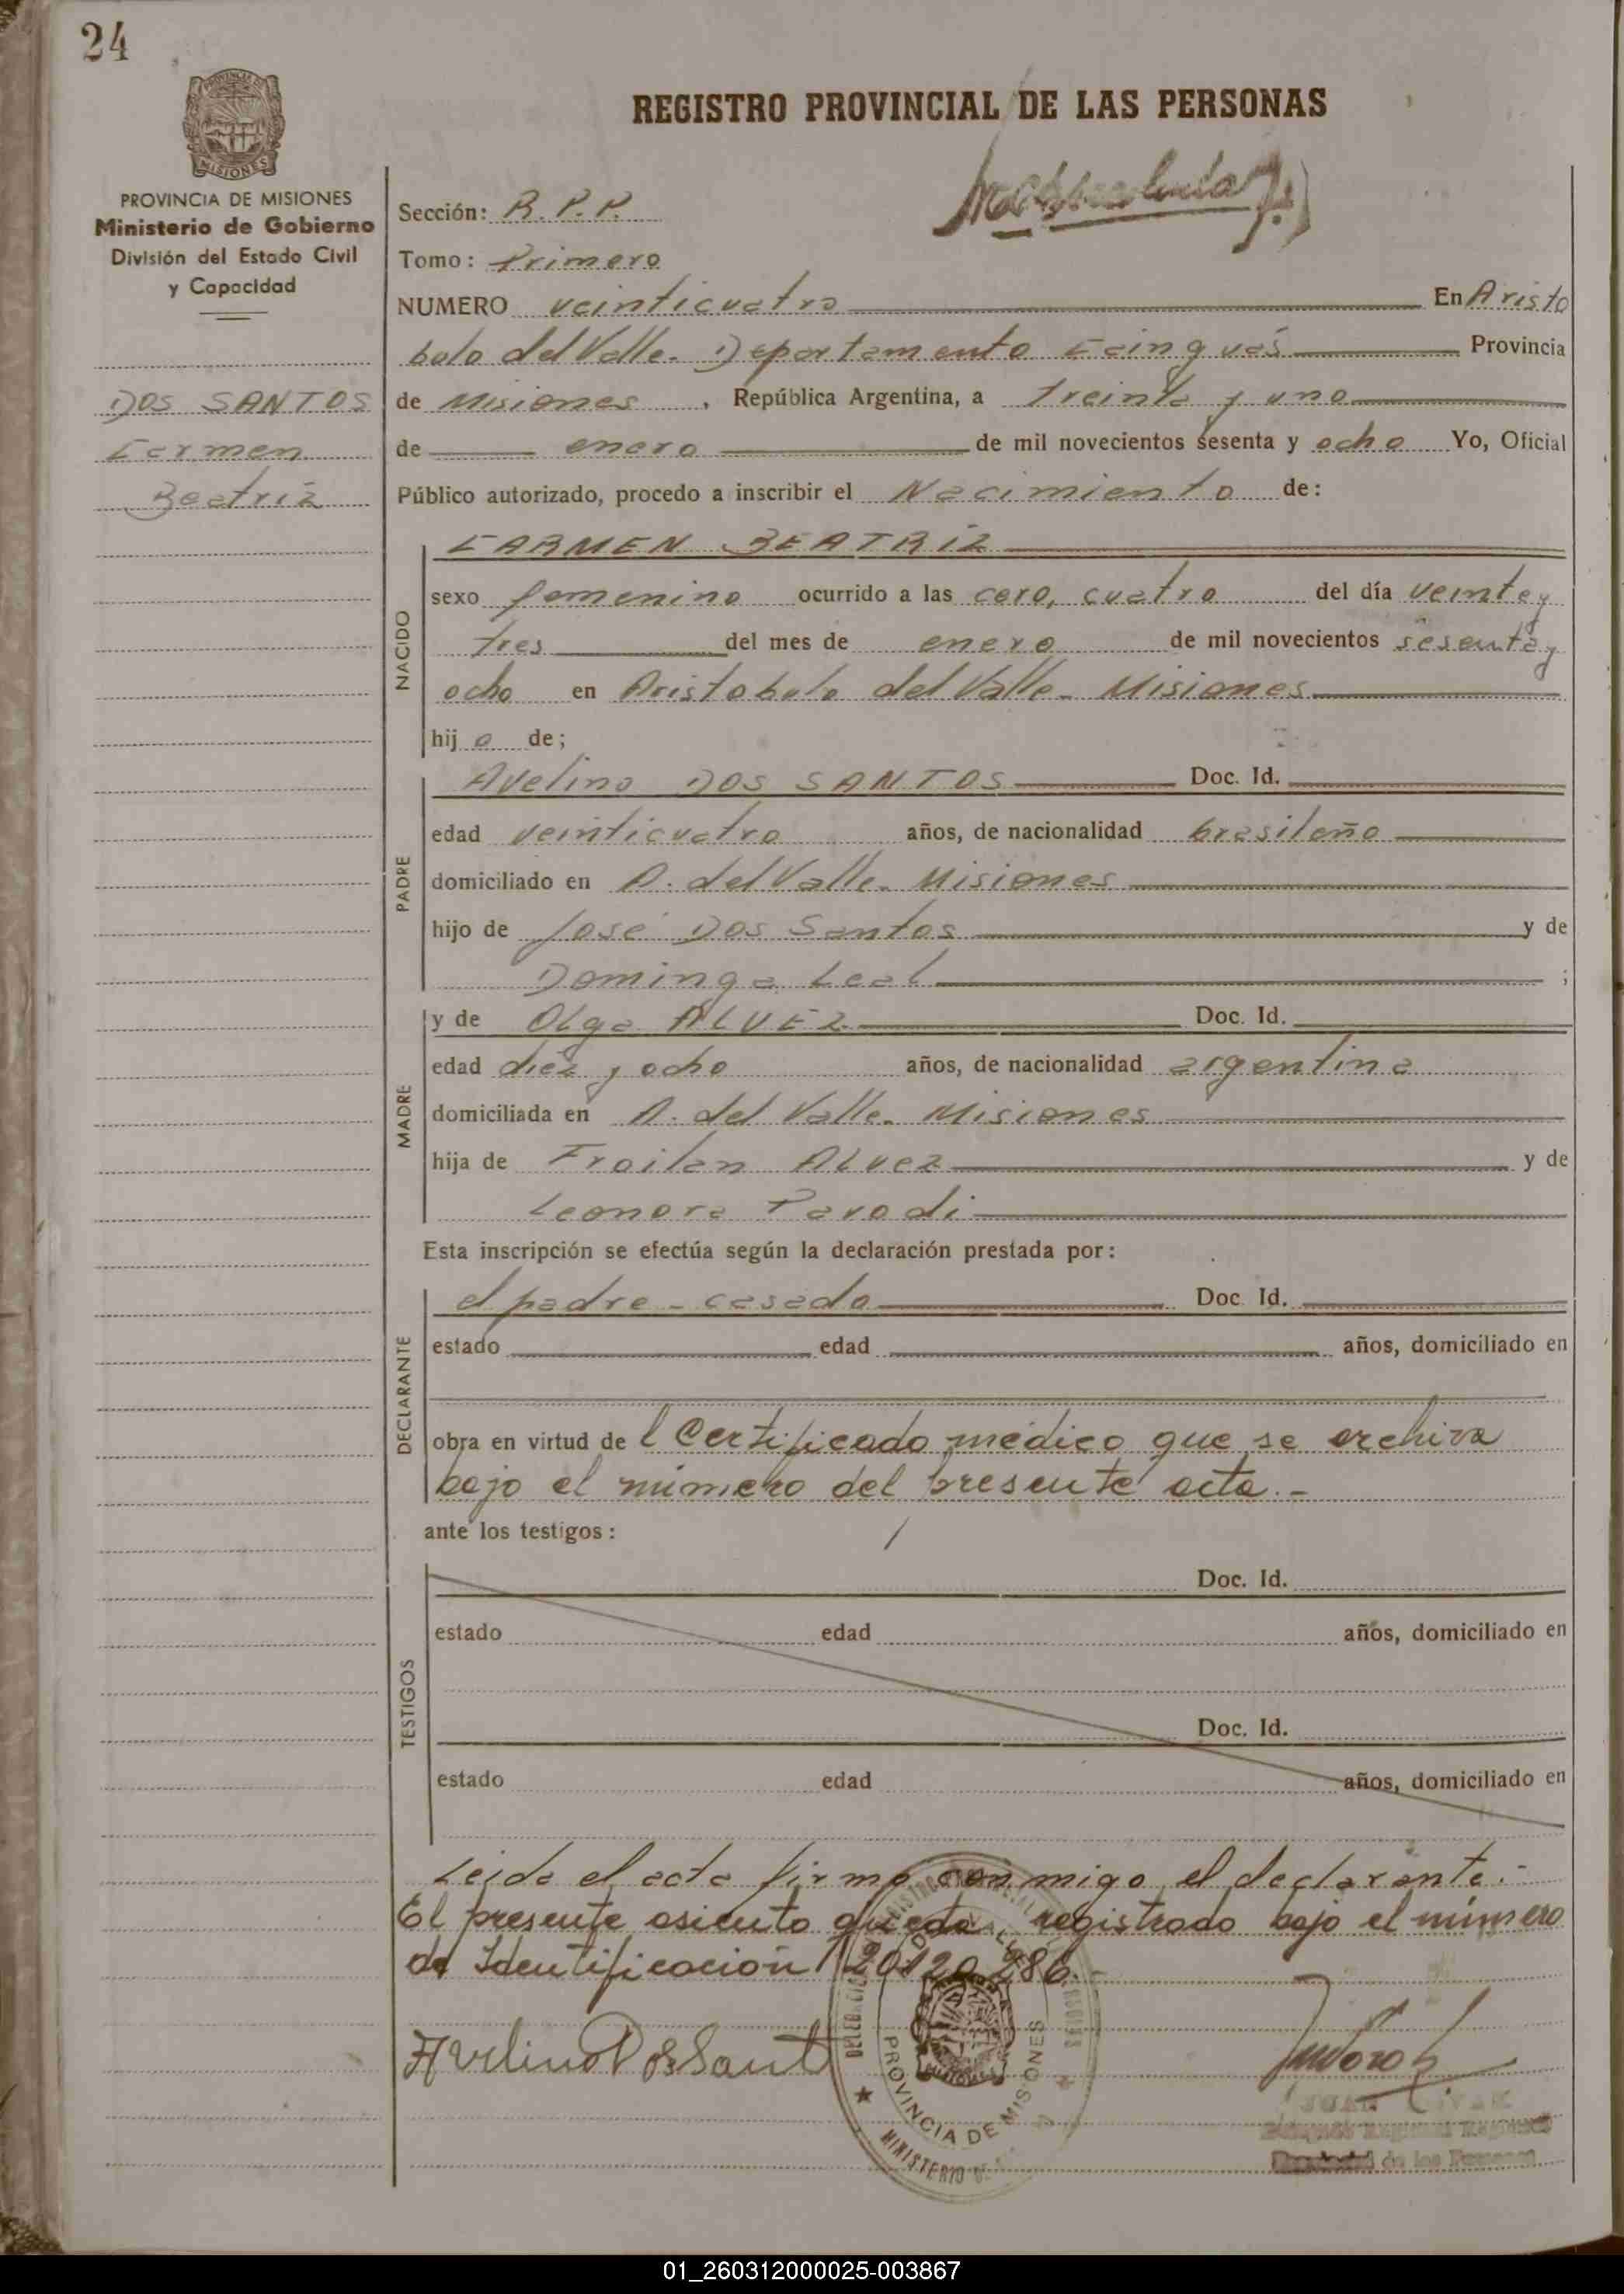 24
PROVINCIA DE MISIONES
Ministerio de Gobierno
División del Estado Civil
y Capacidad
DOS SANTOS
Carmen
Beatriz
REGISTRO PROVINCIAL DE LAS PERSONAS
Sección: R.P.P.
Tomo: Primero
NUMERO veinticuatro En Aristo
bolo del Valle. Departamento Cainguás Provincia
de Misiones, República Argentina, a treinta y uno
de enero de mil novecientos sesenta y ocho Yo, Oficial
Público autorizado, procedo a inscribir el Nacimiento de:
NACIDO
CARMEN BEATRIZ
sexo femenino ocurrido a las cero, cuatro del día veinte y
tres del mes de enero de mil novecientos sesenta y
ocho en Aristobolo del Valle - Misiones
hij a de;
PADRE
Avelino DOS SANTOS Doc. Id.
edad veinticuatro años, de nacionalidad brasileño
domiciliado en A. del Valle - Misiones
hijo de José Dos Santos y de
Dominga Leal ;
MADRE
y de Olga ALVEZ Doc. Id.
edad diez y ocho años, de nacionalidad argentina
domiciliada en A. del Valle - Misiones
hija de Froilan Alvez y de
Leonora Parodi
Esta inscripción se efectúa según la declaración prestada por:
DECLARANTE
el padre - casado Doc. Id.
estado edad años, domiciliado en
obra en virtud de l Certificado médico que se archiva
bajo el número del presente acta.-
ante los testigos:
TESTIGOS
Doc. Id.
estado edad años, domiciliado en
Doc. Id.
estado edad años, domiciliado en
Leída el acta firma conmigo el declarante.-
El presente asiento queda registrado bajo el número
de Identificación 20.120.286.-
Avelino Dos Sant
PROVINCIA DE MISIONES
MINISTERIO DE
JUAN
Delegado Regional Registro
Provincial de las Personas
01_260312000025-003867